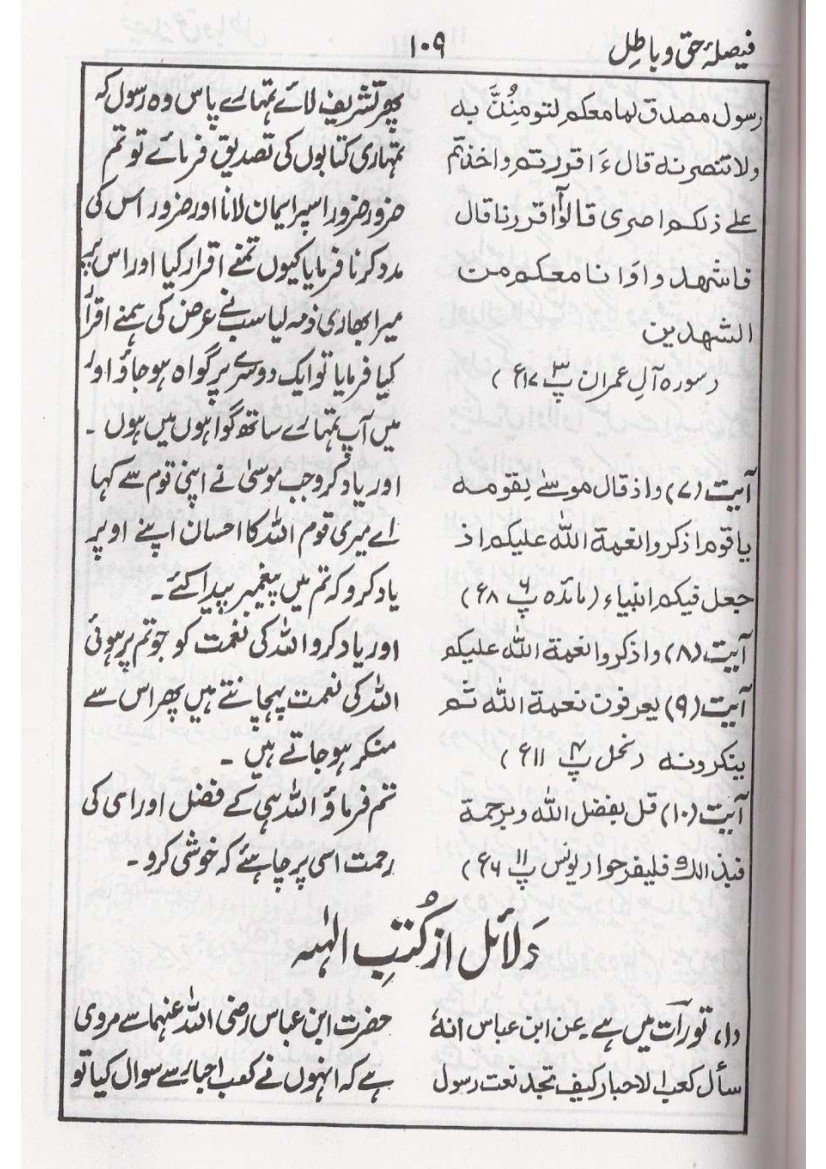 فیصلۂ حق و باطل
۱۰۹
رسول مصدق لما معکم لتومنُنَّ به
ولا تنصرنه قال ءَاقررتم واخذتم
علےٰ ذلکم اصری قالوٓا اقررنا قال
فاشهدوا وَانا معکم من
الشهدین
(سورہ آلِ عمران پ۳ ع۱۷)
پھر تشریف لائے تمہارے پاس وہ رسول کہ
تمہاری کتابوں کی تصدیق فرمائے تو تم
ضرور ضرور اسپر ایمان لانا اور ضرور اس کی
مدد کرنا فرمایا کیوں تمنے اقرار کیا اور اس پہ
میرا بھاری ذمہ لیا سب نے عرض کی ہمنے اقرار
کیا فرمایا تو ایک دوسرے پر گواہ ہو جاؤ اور
میں آپ تمہارے ساتھ گواہوں میں ہوں ۔
آیت (۷) واذ قال موسےٰ لقومه
یاقوم اذکروا نعمة الله علیکم اذ
جعل فیکم انبیاء (مائدہ پ۶ ع۸)
اور یاد کرو جب موسیٰ نے اپنی قوم سے کہا
اے میری قوم اللہ کا احسان اپنے اوپر
یاد کرو کہ تم میں پیغمبر پیدا کئے ۔
آیت (۸) واذکروا نعمة الله علیکم
اور یاد کرو اللہ کی نعمت کو جو تم پر ہوئی
آیت (۹) یعرفون نعمة الله ثم
ینکرونه (نحل پ۴ ع۱۱)
اللہ کی نعمت پہچانتے ہیں پھر اس سے
منکر ہو جاتے ہیں ۔
آیت (۱۰) قل بفضل الله وبرحمة
فبذالك فلیفرحوا (یونس پ۱۱ ع۶)
تم فرماؤ اللہ ہی کے فضل اور اسی کی
رحمت اسی پر چاہئے کہ خوشی کرو ۔
دلائل از کُتبِ الٰہیہ
(۱) تورات میں ہے ۔ عن ابن عباس انهٗ
سأل کعب الاحبار کیف تجد نعت رسول
حضرت ابن عباس رضی اللہ عنہما سے مروی
ہے کہ انہوں نے کعب احبار سے سوال کیا تو